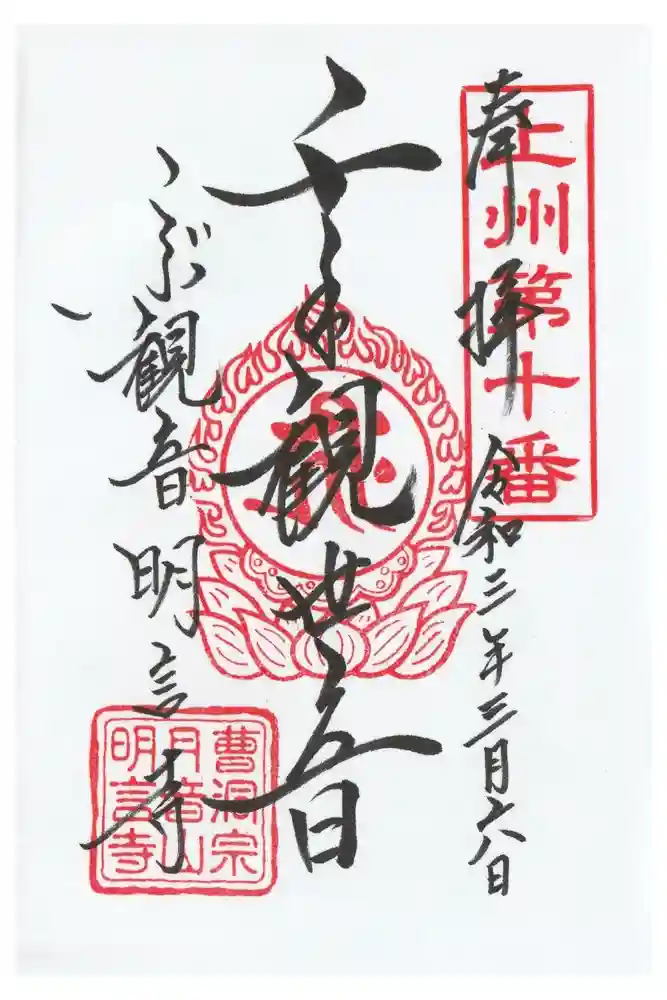 上州第十番
奉拝 令和三年三月六日
千手観世音
こぶ観音 明言寺
曹洞宗
月音山
明言寺